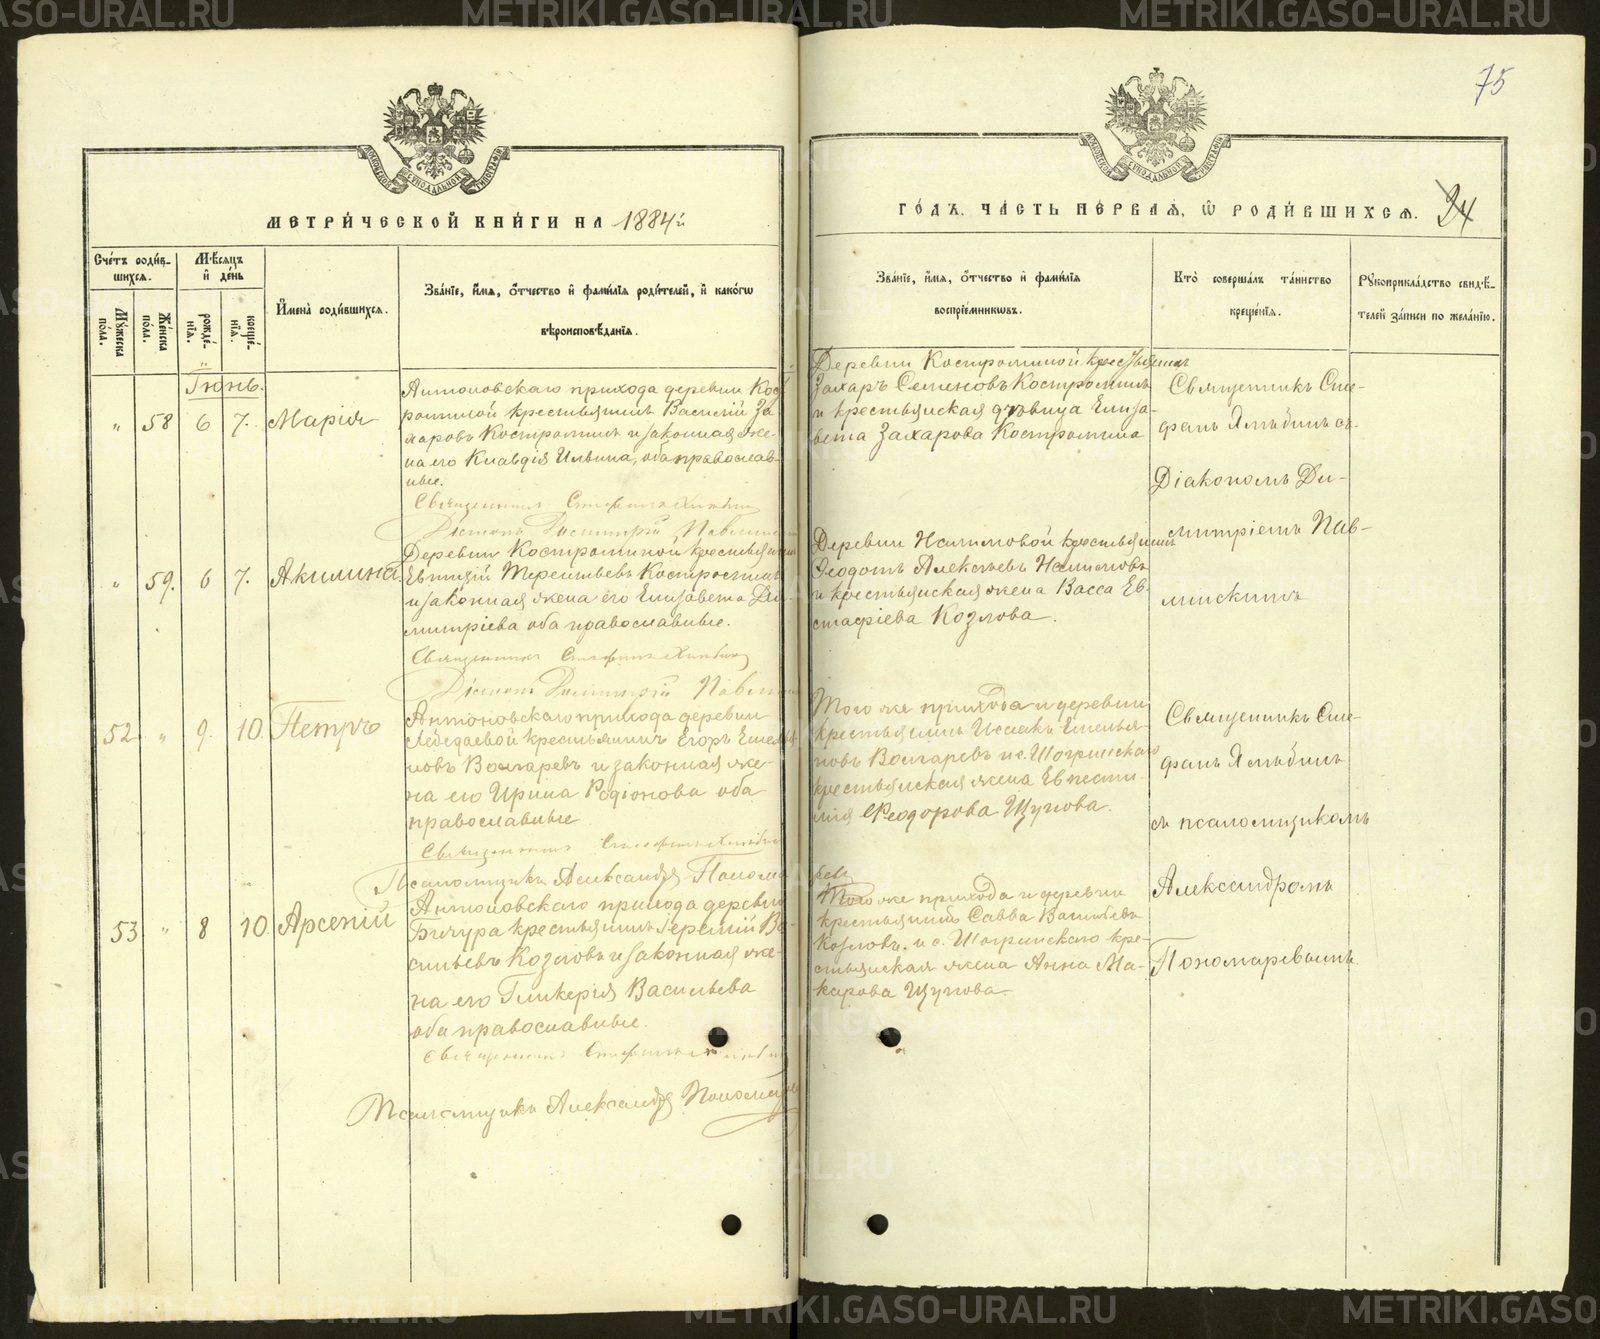 75
МЕТРИ́ЧЕСКОЙ КНИ́ГИ НА 1884й
ГО́ДЪ, ЧА́СТЬ ПЕ́РВАЯ, Ѡ РОДИ́ВШИХСЯ. 24
Сче́тъ роди́в-
шихся.
Му́жеска по́ла.
Же́нска по́ла.
Мѣ́сяцъ
и де́нь
рожде́-
нїя.
креще́-
нїя.
И́мена роди́вшихся.
Зва́нїе, и́мя, о́тчество и фами́лїя роди́телей, и како́гѡ
вѣроисповѣ́данїя.
Зва́нїе, и́мя, о́тчество и фами́лїя
воспрїе́мниковъ.
Кто̀ соверша́лъ та́инство
креще́нїя.
Рукоприкла́дство свидѣ́-
телей за́писи по жела́нїю.
Іюнь.
" 58 6 7. Марія
Антоновскаго прихода деревни Кост
роминой крестьянинъ Василій За
харовъ Костроминъ и законная же-
на его Клавдія Ильина, оба православ-
ные.
Священникъ Стефанъ Хлыбинъ
Діаконъ Димитрій Павлин
Деревни Костроминой крестьянинъ
Захаръ Семеновъ Костроминъ
и крестьянская дѣвица Елиза-
вета Захарова Костромина
Священникъ Сте-
фанъ Хлыбинъ съ
Діакономъ Ди-
митріемъ Пав-
линскимъ
" 59. 6 7. Акилина.
Деревни Костроминой крестьянинъ
Евтихій Терентьевъ Костроминъ
и законная жена его Елизавета Ди-
митріева оба православные.
Священникъ Стефанъ Хлыбинъ
Діаконъ Димитрій Павлин
Деревни Налимовой крестьянинъ
Ѳеодотъ Алексѣевъ Налимовъ
и крестьянская жена Васса Ев
стафіева Козлова.
52 " 9. 10. Петръ
Антоновскаго прихода деревни
Лебедевой крестьянинъ Егоръ Емелья
новъ Волгаревъ и законная же-
на его Ирина Родіонова оба
православные
Священникъ Стефанъ Хлыбинъ
Псаломщикъ Александръ Поном
Того же прихода и деревни
крестьянинъ Исаакъ Емелья-
новъ Волгаревъ и с. Шогринскаго
крестьянская жена Евпести-
мія Ѳеодорова Щупова.
Священникъ Сте-
фанъ Хлыбинъ
съ псаломщикомъ
Александромъ
Пономаревымъ
53 " 8 10. Арсеній
Антоновскаго прихода деревни
Бичура крестьянинъ Іеремій Ва-
сильевъ Козловъ и законная же-
на его Гликерія Васильева
оба православные.
Священникъ Стефанъ Хлыбин
Псаломщикъ Александръ Пономарев
ревъ
Того же прихода и деревни
крестьянинъ Савва Васильевъ
Козловъ. и с. Шогринскаго кре-
стьянская жена Анна Ма-
карова Щупова.
METRIKI.GASO-URAL.RU